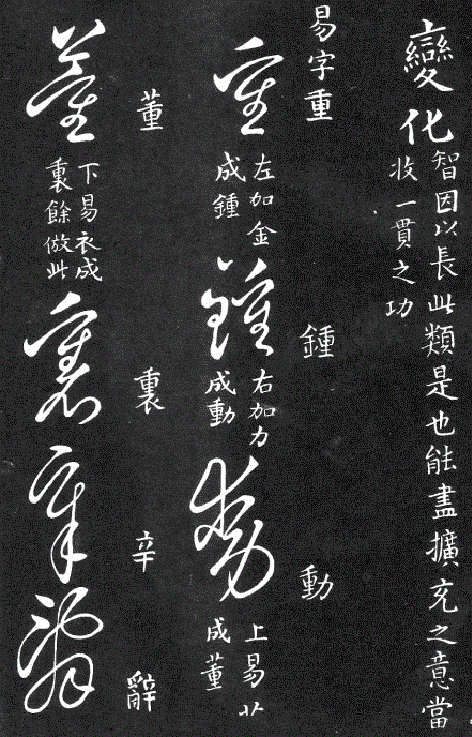 變化
智因以長此類是也能盡擴充之意當
收一貫之功
易字重
鍾
動
重
左加金
成鍾
鍾
右加力
成動
動
上易艹
成董
董
裏
辛
辭
董
下易衣成
裏餘倣此
裏
辛
辭